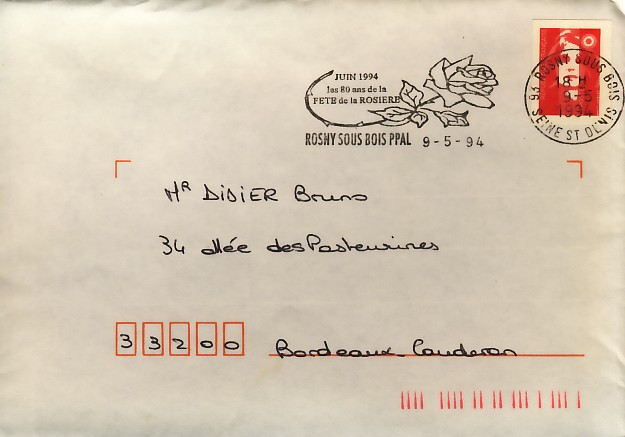 JUIN 1994
les 80 ans de la
FETE de la ROSIERE
ROSNY SOUS BOIS PPAL 9-5-94
93 ROSNY SOUS BOIS
18 H
9-5
1994
SEINE ST DENIS
Mr DIDIER Bruno
34 allée des Pasteurines
33200 Bordeaux-Cauderan